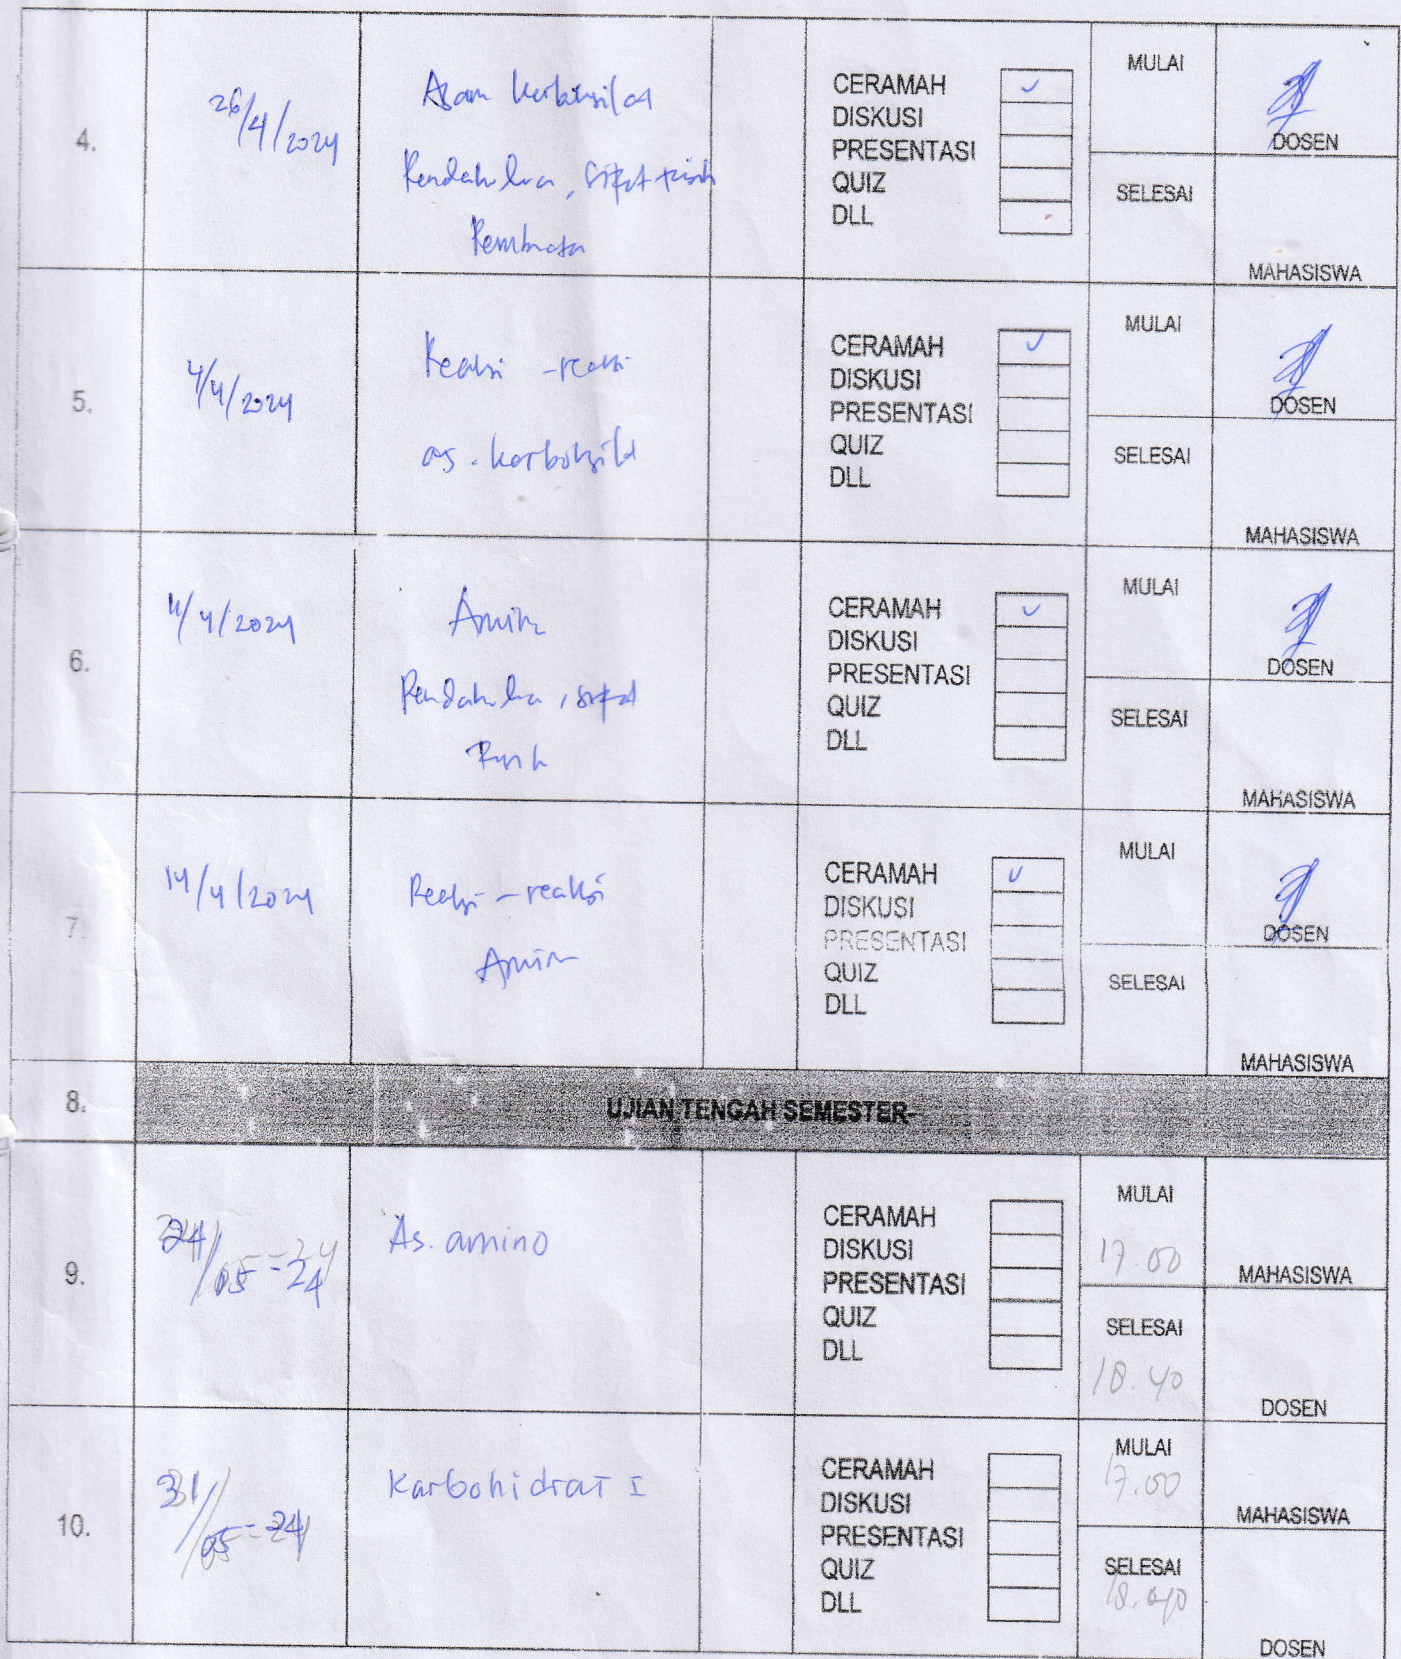 4.
26/4/2024
Asam karboksilat
Pendahulua, sifat fisik
Pembuata
CERAMAH ✓
DISKUSI
PRESENTASI
QUIZ
DLL
MULAI
SELESAI
DOSEN
MAHASISWA
5.
4/4/2024
Reaksi - reaksi
as. karboksilat
CERAMAH ✓
DISKUSI
PRESENTASI
QUIZ
DLL
MULAI
SELESAI
DOSEN
MAHASISWA
6.
4/2024
Amin
Pendahulua, sifat
Fisik
CERAMAH ✓
DISKUSI
PRESENTASI
QUIZ
DLL
MULAI
SELESAI
DOSEN
MAHASISWA
7.
14/4/2024
Reaksi - reaksi
Amin
CERAMAH ✓
DISKUSI
PRESENTASI
QUIZ
DLL
MULAI
SELESAI
DOSEN
MAHASISWA
8.
UJIAN TENGAH SEMESTER-
9.
24/05-24
As. amino
CERAMAH
DISKUSI
PRESENTASI
QUIZ
DLL
MULAI
17.00
SELESAI
18.40
MAHASISWA
DOSEN
10.
31/05-24
Karbohidrat I
CERAMAH
DISKUSI
PRESENTASI
QUIZ
DLL
MULAI
17.00
SELESAI
18.40
MAHASISWA
DOSEN